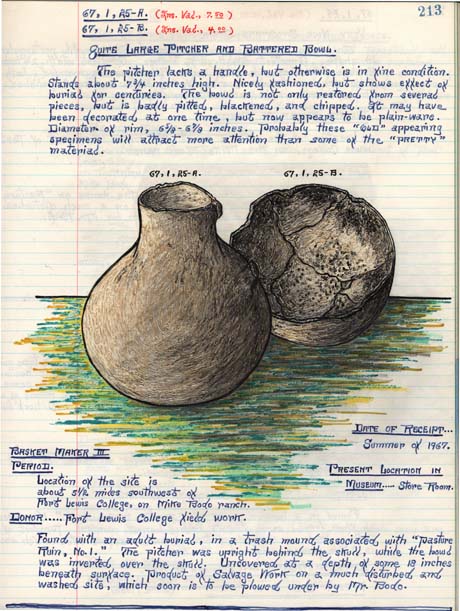 213
67, 1, 25-A. (Ins. Val., 7.50)
67, 1, 25-B. (Ins. Val., 4.00)
Quite Large Pitcher and Battered Bowl.
This pitcher lacks a handle, but otherwise is in fine condition.
Stands about 7 3/4 inches high. Nicely fashioned, but shows effect of
burial for centuries. The bowl is not only restored from several
pieces, but is badly pitted, blackened, and chipped. It may have
been decorated, at one time, but now appears to be plain-ware.
Diameter of rim, inches. Probably these "old" appearing
specimens will attract more attention than some of the "pretty"
material.
67, 1, 25-A. 67, 1, 25-B.
Date of Receipt...
Summer of 1967.
Basket Maker III
Period.
Present Location in
Museum.... Store Room.
Location of the site is
about 5 1/2 miles southwest of
Fort Lewis College, on Mike Bodo ranch.
Donor..... Fort Lewis College field work.
Found with an adult burial, in a trash mound associated with "Pasture
Ruin, No. 1." The pitcher was upright behind the skull, while the bowl
was inverted over the skull. Uncovered at a depth of some 18 inches
beneath surface. Product of Salvage Work on a much disturbed and
washed site, which soon is to be plowed under by Mr. Bodo.